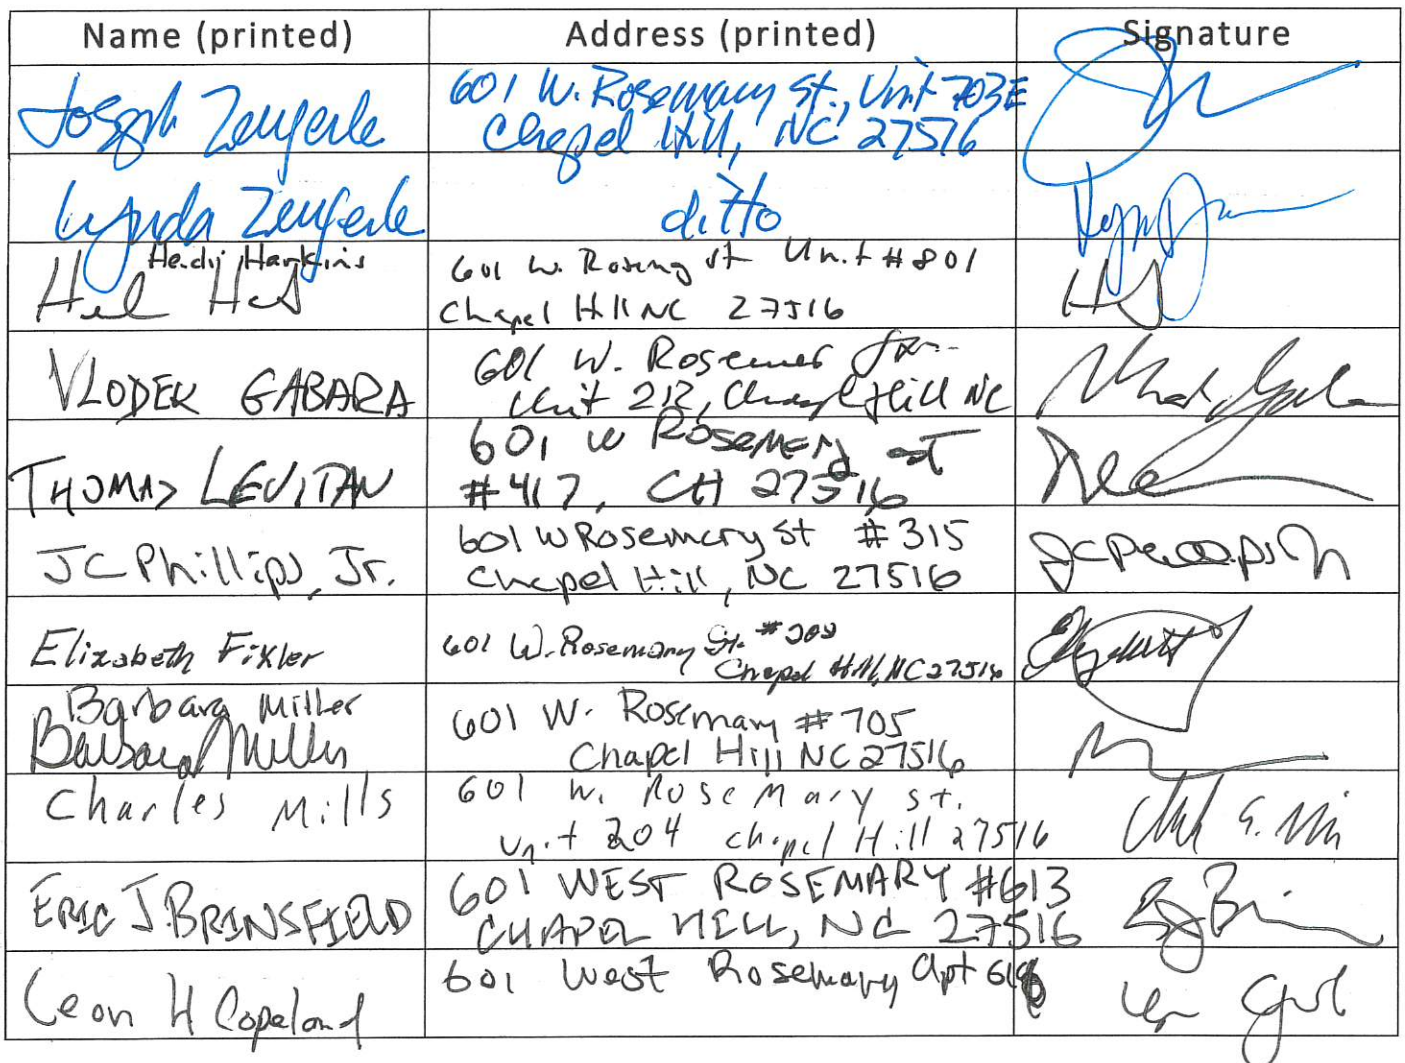 Name (printed) Address (printed) Signature
Joseph Zengerle 601 W. Rosemary St., Unit 703E
Chapel Hill, NC 27516
Lynda Zengerle ditto
Heidi Harkins 601 W. Rosemary st Unit #801
Chapel Hill NC 27516
VLODEK GABARA 601 W. Rosemer
Unit 212, Chapel Hill NC
THOMAS LEVITAN 601 W ROSEMERY ST
#417, CH 27516
JC Phillips, Jr. 601 W Rosemary St #315
Chapel Hill, NC 27516
JCPhillips Jr
Elizabeth Fixler 601 W. Rosemary St. #208
Chapel Hill, NC 27516
Elizabeth
Barbara Miller
Barbara Miller 601 W. Rosemary #705
Chapel Hill NC 27516
Charles Mills 601 W. Rosemary st.
Unit 204 chapel Hill 27516
ERIC J. BRINSFIELD 601 WEST ROSEMARY #613
CHAPEL HILL, NC 27516
Leon H Copeland 601 West Rosemary Apt